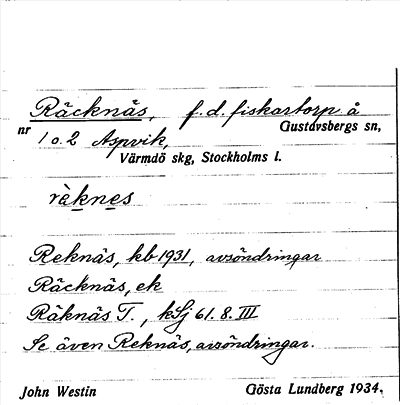 Räcknäs, f.d. fiskartorp å
nr 1 o. 2 Aspvik, Gustavsbergs sn,
Värmdö skg, Stockholms l.
rä̀knes
Reknäs, kb 1931, avsöndringar
Räcknäs, ek
Räknäs T., kSj 61. 8. III
Se även Reknäs, avsöndringar.
John Westin Gösta Lundberg 1934.